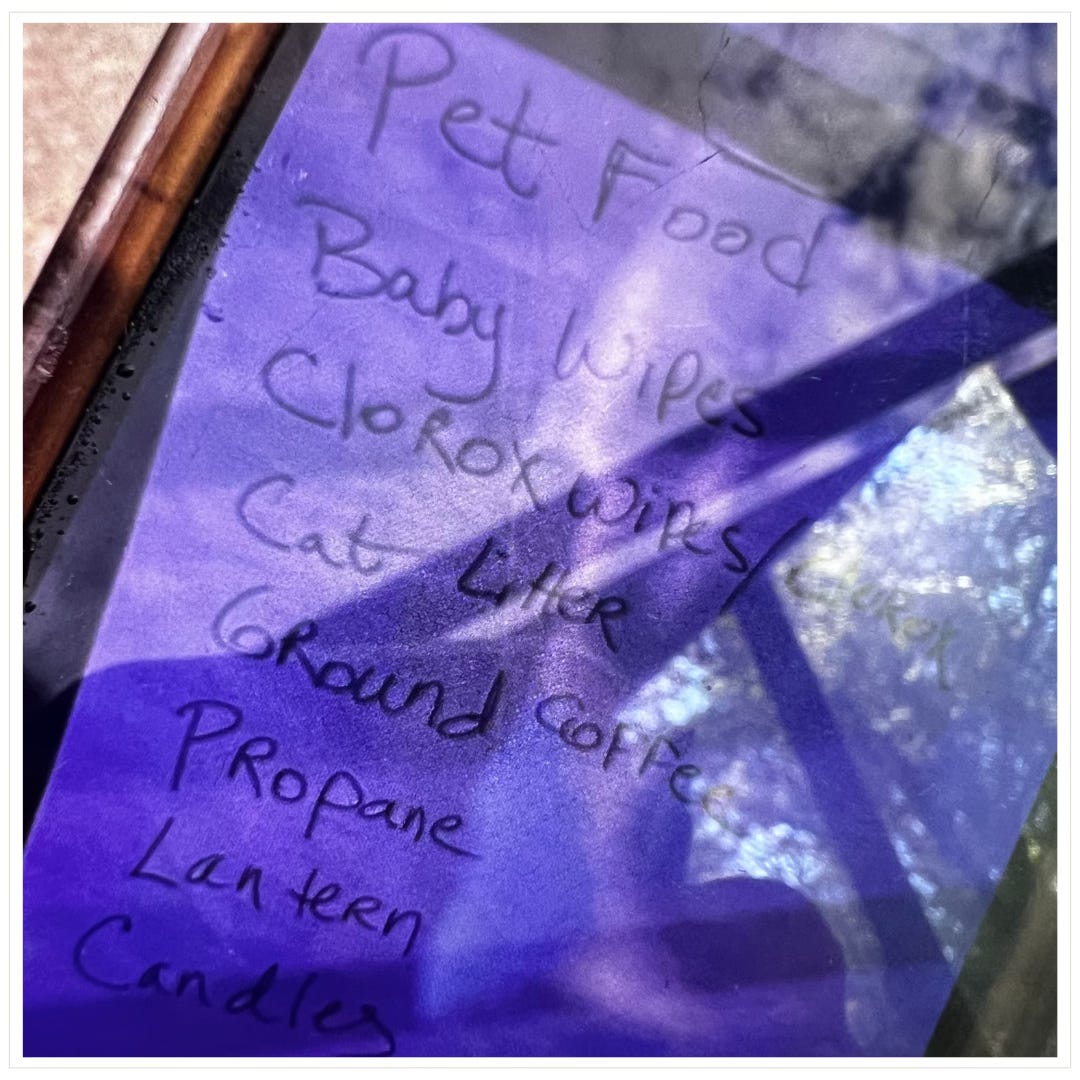 Pet Food
Baby Wipes
Clorox Wipes/Clorox
Cat Litter
Ground Coffee
Propane
Lantern
Candles